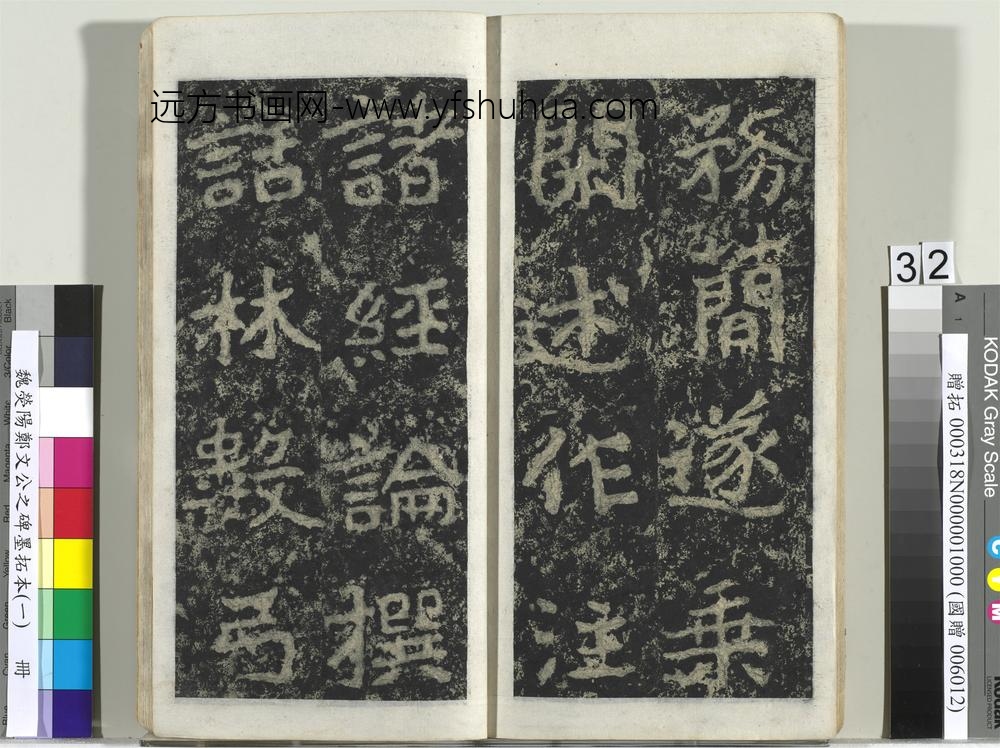 务簡遂乗
閑述作注
諸經論撰
話林數弓
远方书画网-www.yfshuhua.com
32
魏滎陽鄭文公之碑墨拓本(一) 冊
贈拓 000318N000001000 (國贈 006012)
KODAK Gray Scale
A 1
C Y M
Kodak
LICENSED PRODUCT
Black
3/Color
White
Magenta
Red
Yellow
Green
Cyan
Blue